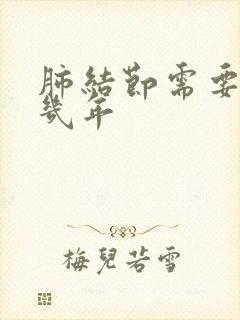 肺結節需要
幾年
梅兒若雪